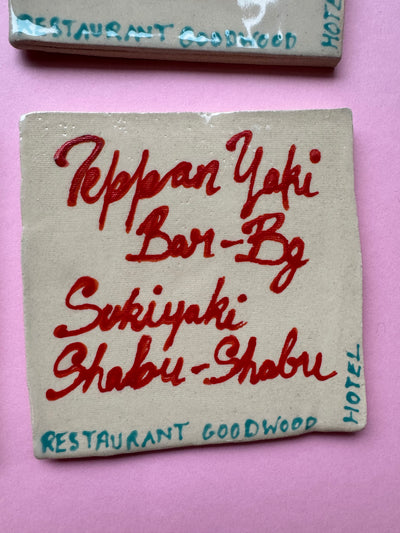 RESTAURANT GOODWOOD
HOTEL
Teppan Yaki
Bar-Bg
Sukiyaki
Shabu-Shabu
RESTAURANT GOODWOOD
HOTEL